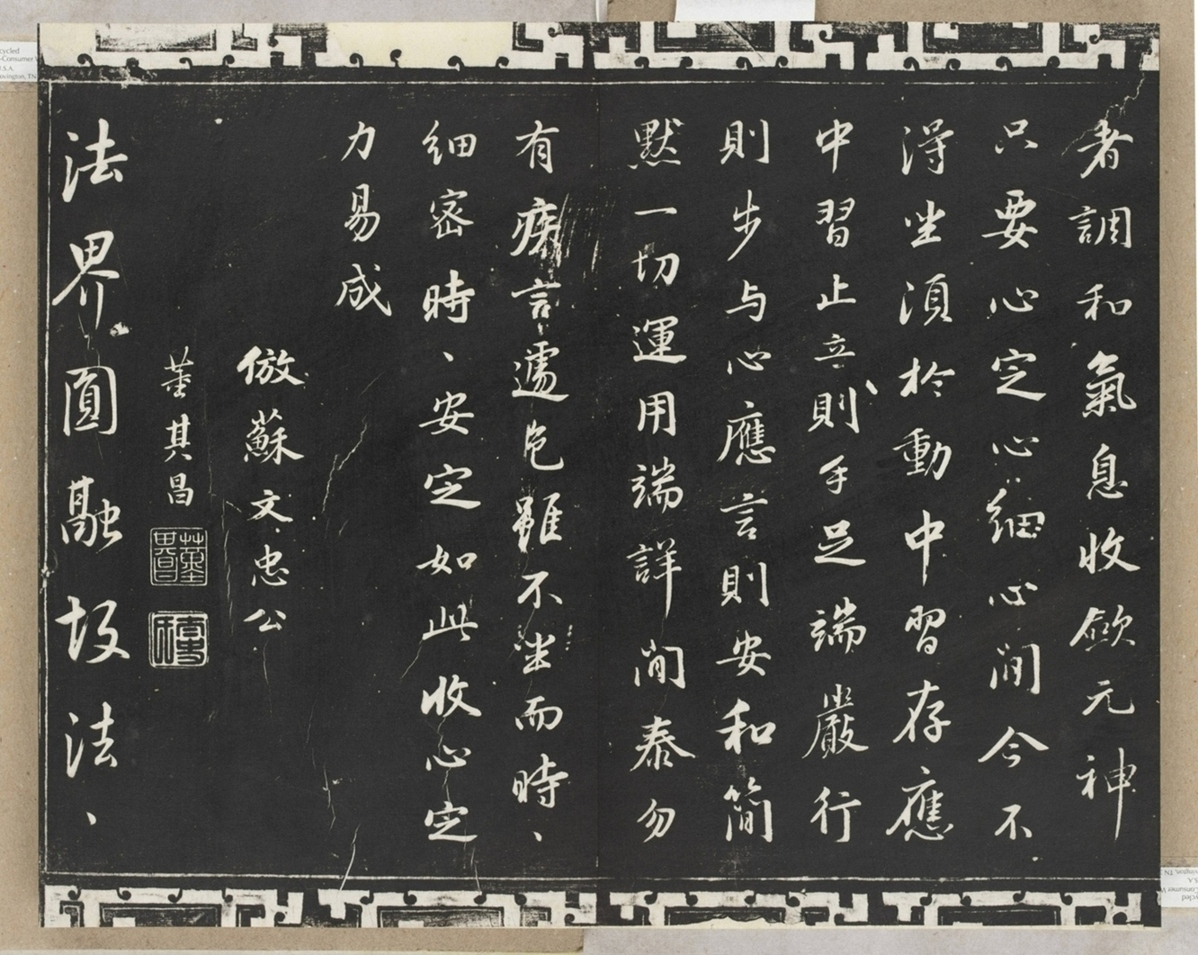 者調和氣息收歛元神
只要心定心細心閒今不
得坐須於動中習存應
中習止立則手足端嚴行
則步与心應言則安和簡
默一切運用端詳閒泰勿
有疾言遽色雖不坐而時、
細密時、安定如此收心定
力易成
倣蘇文忠公
董其昌
法界圓融故法、